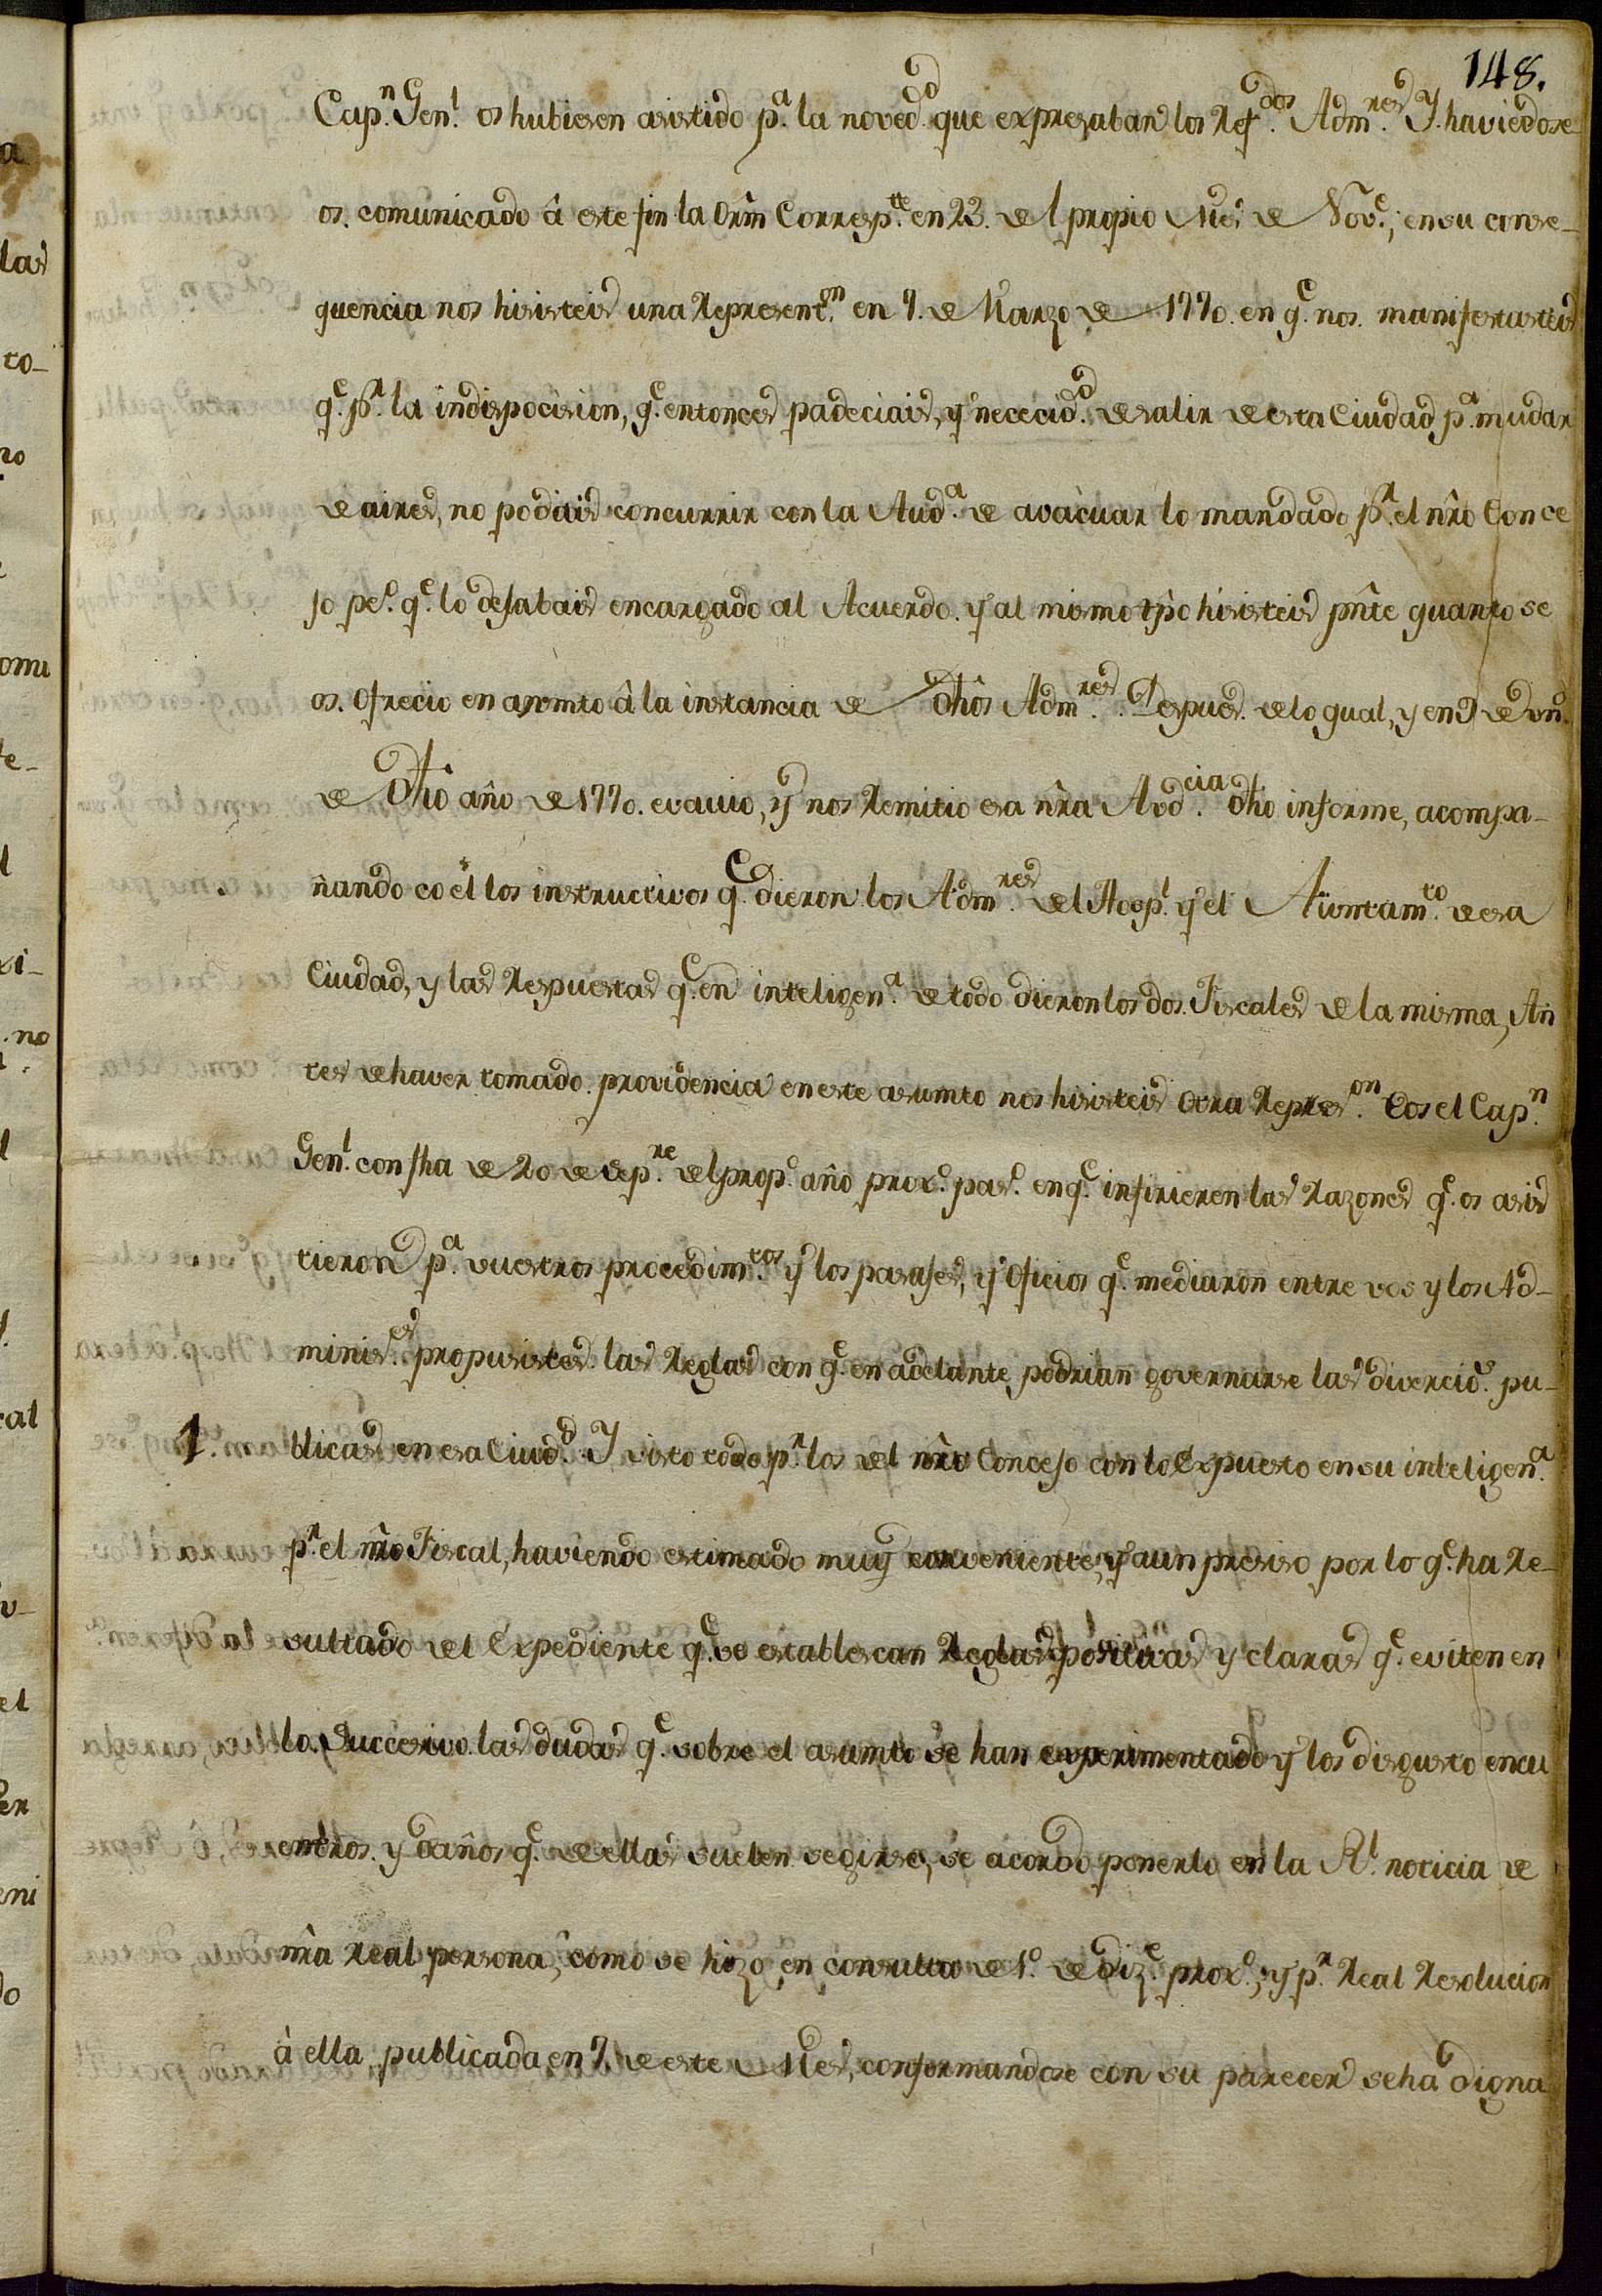 148.
Cap.n Gen.l os hubiesen asistido p.a la noved.d que expresaban los Ref.dos Adm.res Y haviedose
os. comunicado â este fin la Orñ Corresp.te en 23. de l propio Mes de Nov.e; en su conse-
quencia nos hisisteis una Represent.on en 7. de Marzo de 1770. en q.e nos. manifestasteis
q.e p.r la indispocision, q.e entonces padeciais, y nececid.d de salir de esta Ciudad p.a mudar
de aires, no podiais concurrir con la Aud.a de avacuar lo mandado p.r el nr̃o Conce
jo pe.o q.e lo dejabais encargado al Acuerdo. y al mismo tp̃o hisisteis pñte quanto se
os. Ofrecio en asumto â la instancia de dhõs Adm.res. Despues. de lo qual, y en 9 de Jun.
de dhõ año de 1770. evacuo, y nos Remitio esa nr̃a Aud.cia dhõ informe, acompa-
ñando co el los instructivos q.e dieron los Adm.res del Hosp.l y el Aiuntam.to de esa
Ciudad, y las Respuestas q.e en inteligen.a de todo dieron los dos. Fiscales de la misma, An
tes de haver tomado providencia en este asumto nos hisisteis otra Repres.on Vos el Cap.n
Gen.l con fha de 20 de sep.re del prop.o año prox.o pas.o en q.e infirieren las Razones q.e os asis
tieron p.a vuestros procedim.tos y los pasajes, y Oficios q.e mediaron entre vos y los Ad-
minis.es propusistes las Reglas con q.e en adelante podrian governarse las divercio.s pu-
1. blicas en esa Ciud.d Y visto todo p.r los del nrõ Concejo con lo Expuesto en su inteligen.a
p.r el nrõ Fiscal, haviendo estimado muy conveniente, y aun presiso por lo q.e ha Re-
sultado del Expediente q.e se establescan Reglas positivas y claras q.e eviten en
lo Succesivo las dudas q.e sobre el asumto se han experimentado y los disgusto encu
entros. y daños q.e de ellas suelen segirse, se acordo ponerlo en la R.l noticia de
nr̃a Real persona, como se hizo en consulta de 1.o de Diz.e prox.o; y p.r Real Resolucion
à ella publicada en 7. de este Mes, conformandose con su parecer se ha digna